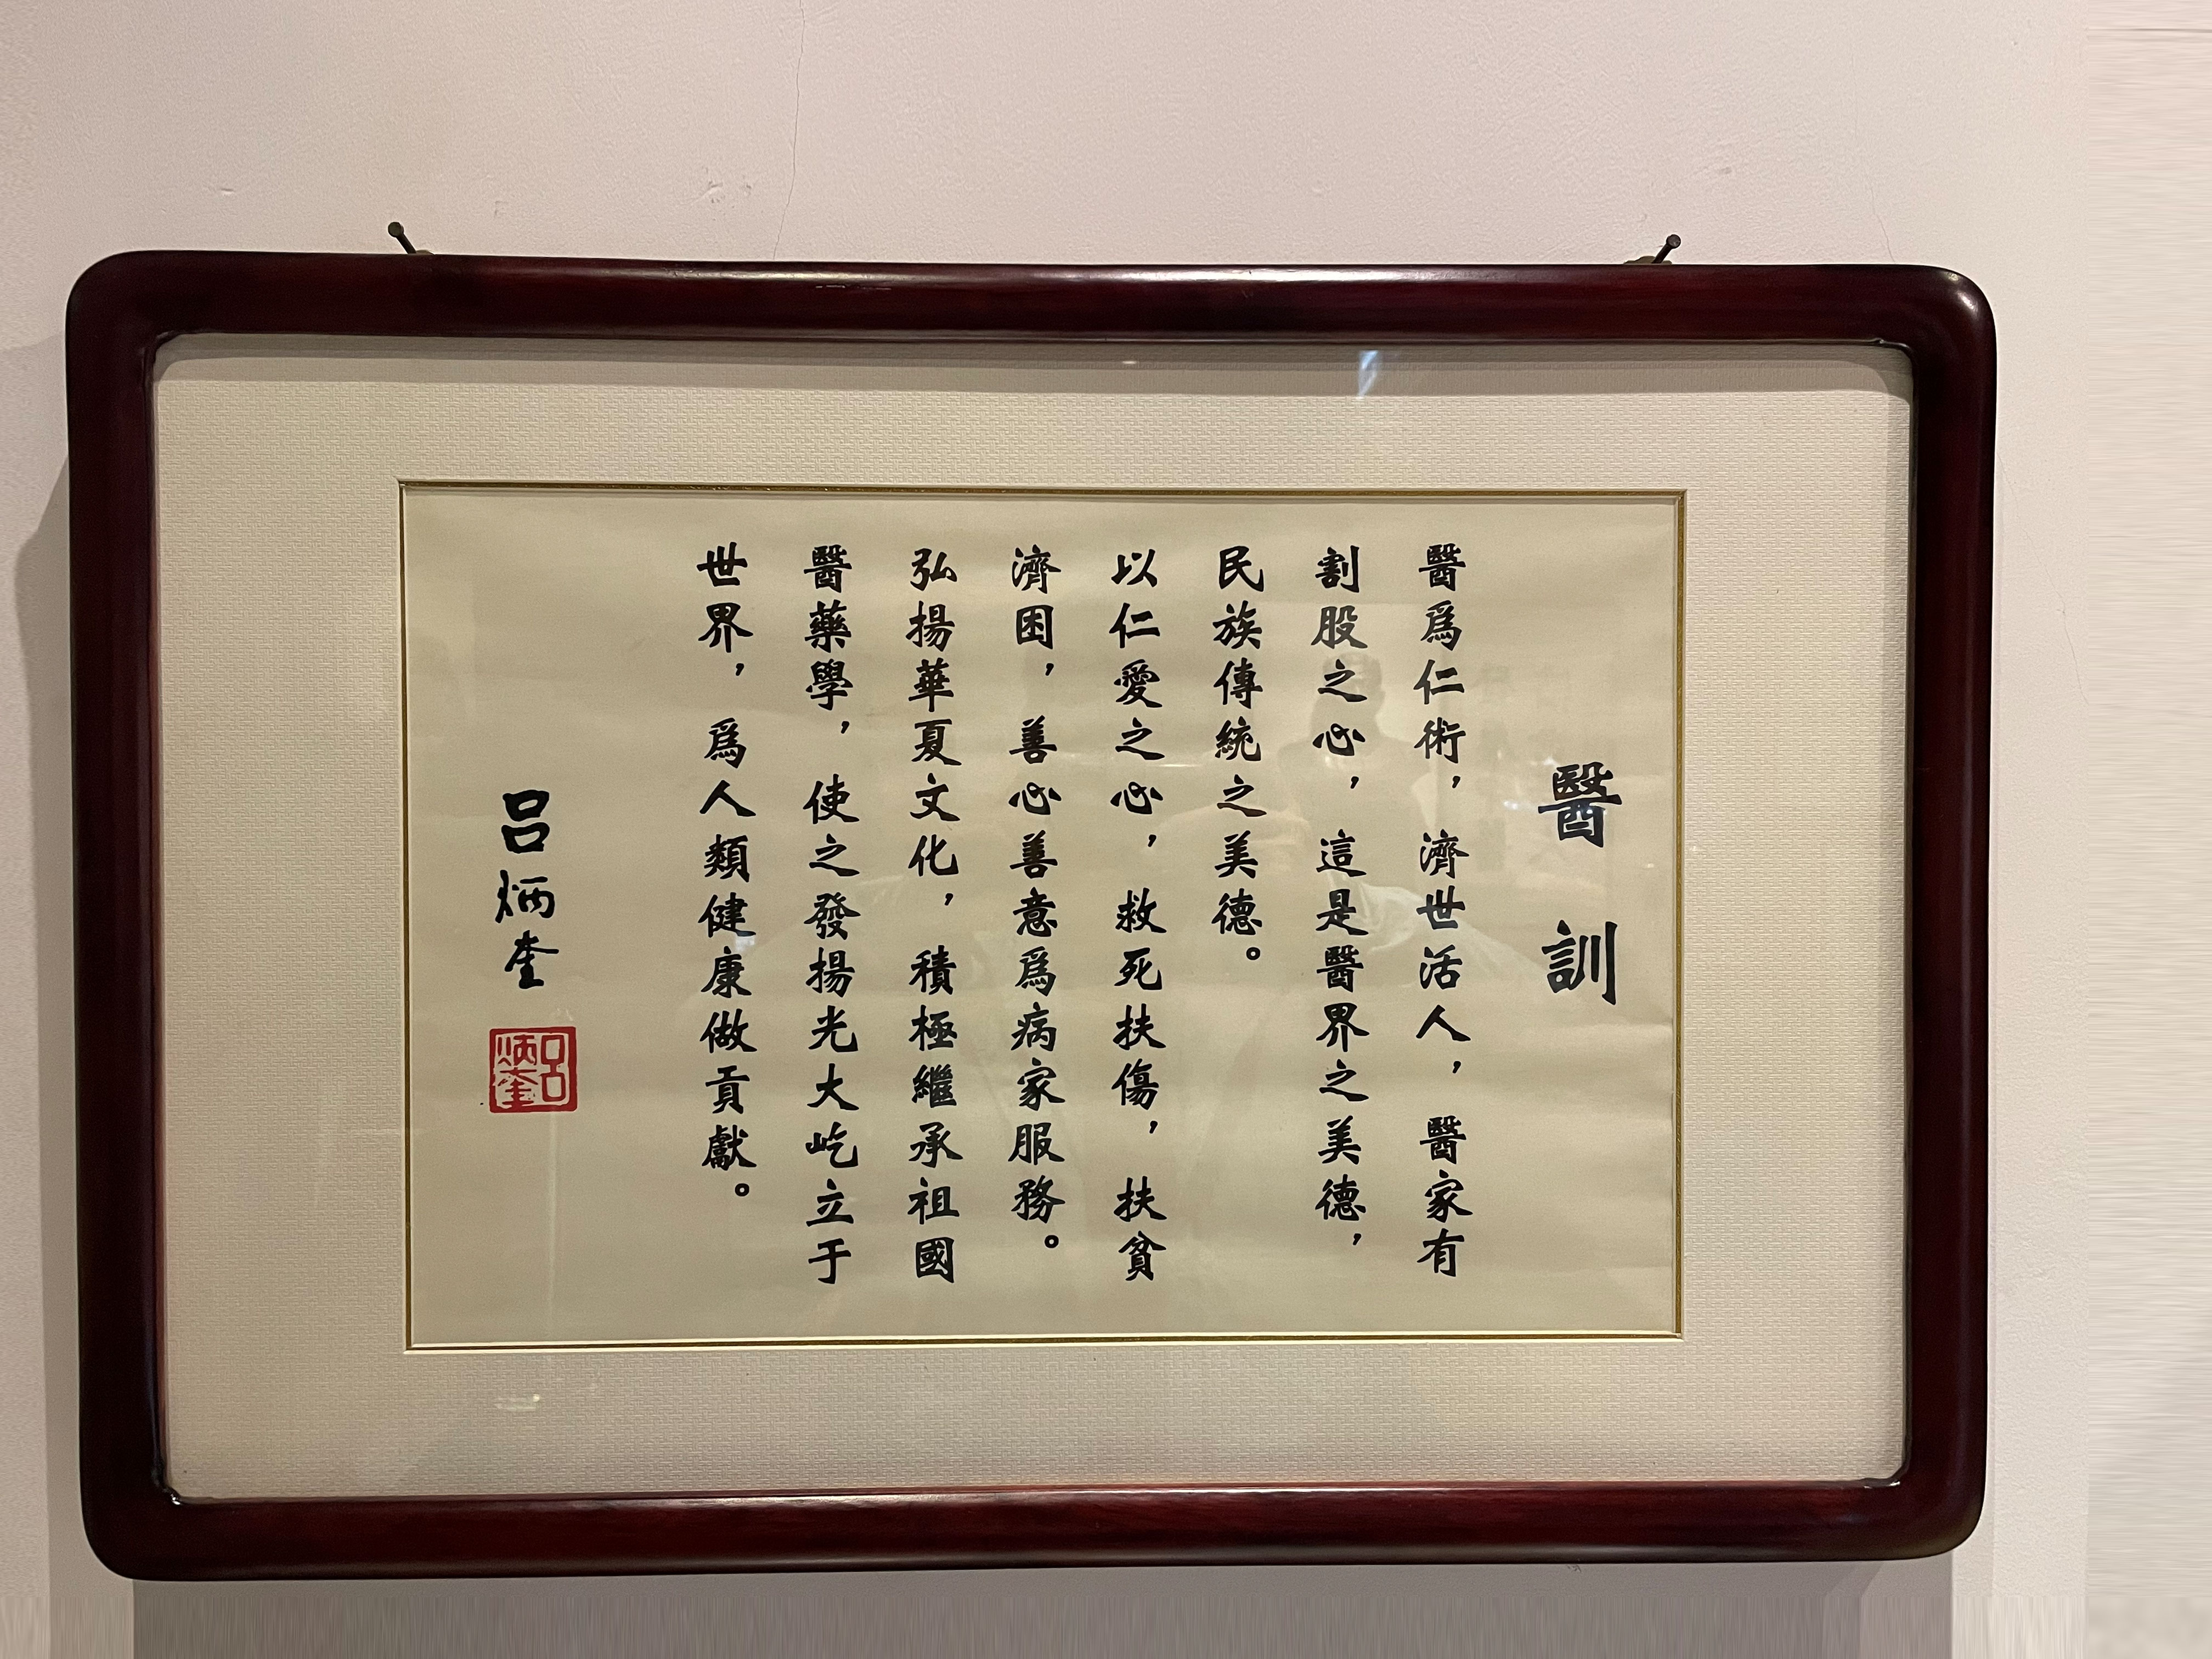 醫訓
醫爲仁術，濟世活人，醫家有
割股之心，這是醫界之美德，
民族傳統之美德。
以仁愛之心，救死扶傷，扶貧
濟困，善心善意爲病家服務。
弘揚華夏文化，積極繼承祖國
醫藥學，使之發揚光大屹立于
世界，爲人類健康做貢獻。
吕炳奎
吕炳奎